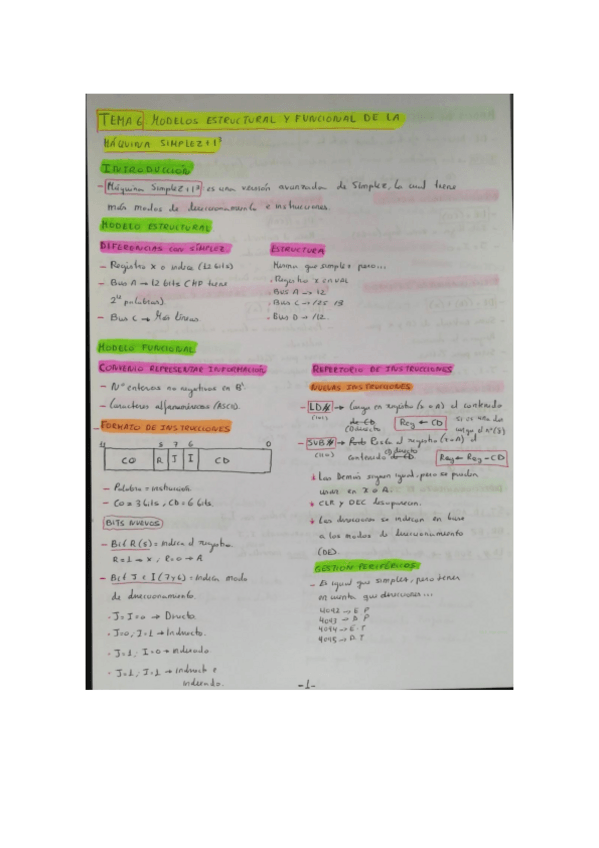 TEMA 6. MODELOS ESTRUCTURAL Y FUNCIONAL DE LA
MÁQUINA SIMPLEZ+I³
INTRODUCCIÓN
- Máquina Simplez+I³: es una versión avanzada de Simplez, la cual tiene
más modos de direccionamiento e instrucciones.
MODELO ESTRUCTURAL
DIFERENCIAS con SIMPLEZ
- Registro x o índice (12 bits)
- Bus A → 12 bits (MP tiene
2¹² palabras).
- Bus C → Más líneas.
ESTRUCTURA
Misma que simplez pero...
· Registro x
· Bus A → 12
· Bus C →
· Bus D → /12
MODELO FUNCIONAL
CONVENIO REPRESENTAR INFORMACIÓN
- Nº enteros no negativos en
- Caracteres alfanuméricos (ASCII).
- FORMATO DE INSTRUCCIONES
5 7 6 0
CO R I I CD
- Palabra = instrucción.
- CO = 3 bits, CD = 6 bits.
BITS NUEVOS
- Bit R (5) = Indica el registro
R=1 → x, R=0 → A
- Bit J e I (7 y 6) = Indica modo
de direccionamiento.
· J=I=0 → Directo
· J=0, I=1 → Indirecto.
· J=1, I=0 → indexado
· J=1, I=1 → Indirecto e
indexado.
REPERTORIO DE INSTRUCCIONES
NUEVAS INSTRUCCIONES
- LD → Carga en registro (x o A) el contenido
de CD
Reg ← CD
- SUB → Resta al registro (x o A) el
contenido de CD.
Reg ← Reg - CD
Las demás siguen igual, pero se pueden
usar en X o A.
CLR y DEC desaparecen.
Las direcciones se indican en base
a los modos de direccionamiento
(DE).
GESTIÓN PERIFÉRICOS
- Es igual que simplez, pero tener
en cuenta que direcciones...
4092 → E.P
4093 → D.P
4094 → E.T
4095 → D.T
-1-